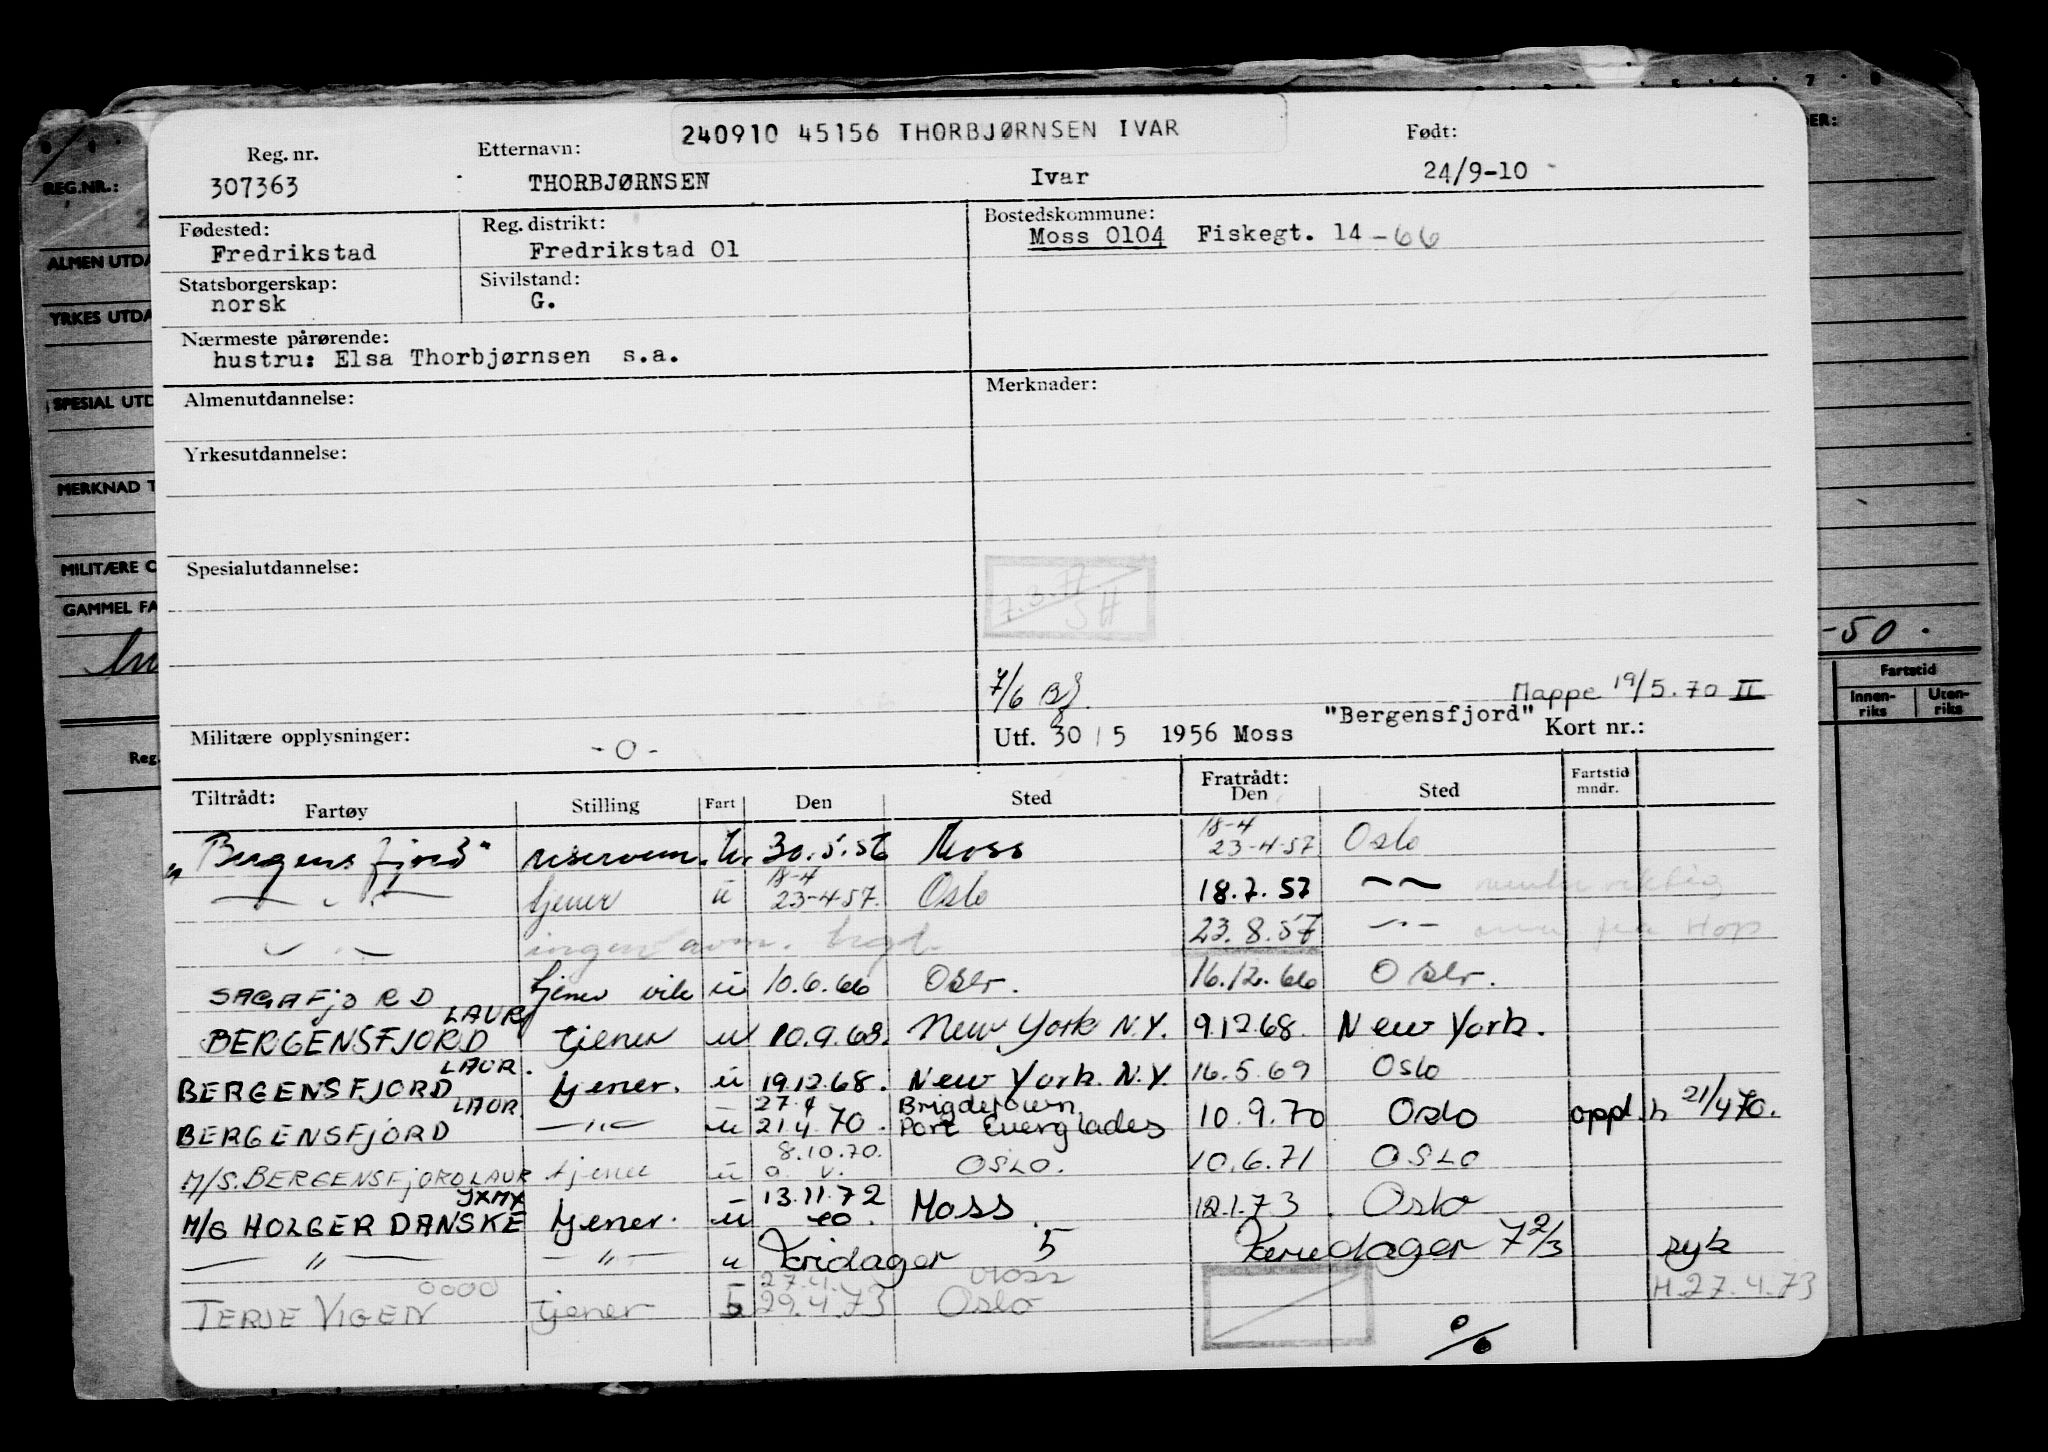 240910 45156 THORBJØRNSEN IVAR
Reg. nr. Etternavn: Født:
307363 THORBJØRNSEN Ivar 24/9-10
Fødested: Reg. distrikt: Bostedskommune:
Fredrikstad Fredrikstad 01 Moss 0104 Fiskegt. 14 -66
Statsborgerskap: Sivilstand:
norsk G.
Nærmeste pårørende:
hustru: Elsa Thorbjørnsen s.a.
Almenutdannelse: Merknader:
Yrkesutdannelse:
Spesialutdannelse:
7.3.77
SH
7/6
Mappe 19/5.70 II
Militære opplysninger: -0- Utf. 30/5 1956 Moss "Bergensfjord" Kort nr.:
Tiltrådt: Fartøy Stilling Fart Den Sted Fratrådt: Den Sted Fartstid mndr.
"Bergensfjord" 30.5.56 Moss 18-4 23-4-57 Oslo
— " — tjener u 18-4 23-4-57. Oslo 18.7.57 — —
— " — ingen 23.8.57 — " —
SAGAFJORD tjener vik u 10.6.66 Oslo. 16.12.66 Oslo.
BERGENSFJORD LAUR tjener u 10.9.68. New York N.Y. 9.12.68. New York.
BERGENSFJORD LAUR. tjener. u 19.12.68. New York. N.Y. 16.5.69 Oslo
BERGENSFJORD LAUR — " — u 27.4 21.4.70. Brigdetown Port Everglades 10.9.70 Oslo oppl. h 21/4 70.
M/S. BERGENSFJORD LAUR tjener u 8.10.70. OSLO. 10.6.71 OSLO
M/S HOLGER DANSKE JXMX tjener. u 13.11.72 Moss 12.1.73. Oslo
— " — — " — u Fridager 5 Feriedager 7 2/3 syk
TERJE VIGEN 0000 tjener 27.4. 29.4.73 Moss Oslo H. 27.4.73
%
REG.NR.:
ALMEN UTDA
YRKES UTDA
SPESIAL UTD
MERKNAD T
MILITÆRE O
GAMMEL FA
Reg.
ER:
-50.
Fartstid
Innen-riks Uten-riks